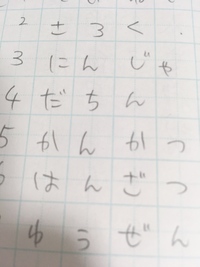 2 さろく
3 にんじゃ
4 だちん
5 かんかつ
はんざつ
ゆうぜん